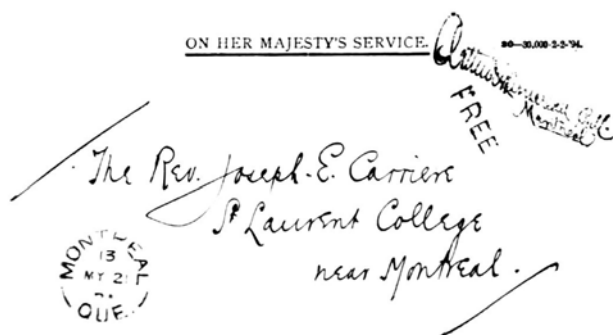 ON HER MAJESTY'S SERVICE.
80—30,000-2-2-'94.
Montreal
FREE
The Rev. Joseph. E. Carriere
St Laurent College
near Montreal.
MONTREAL
13
MY 2
QUE.